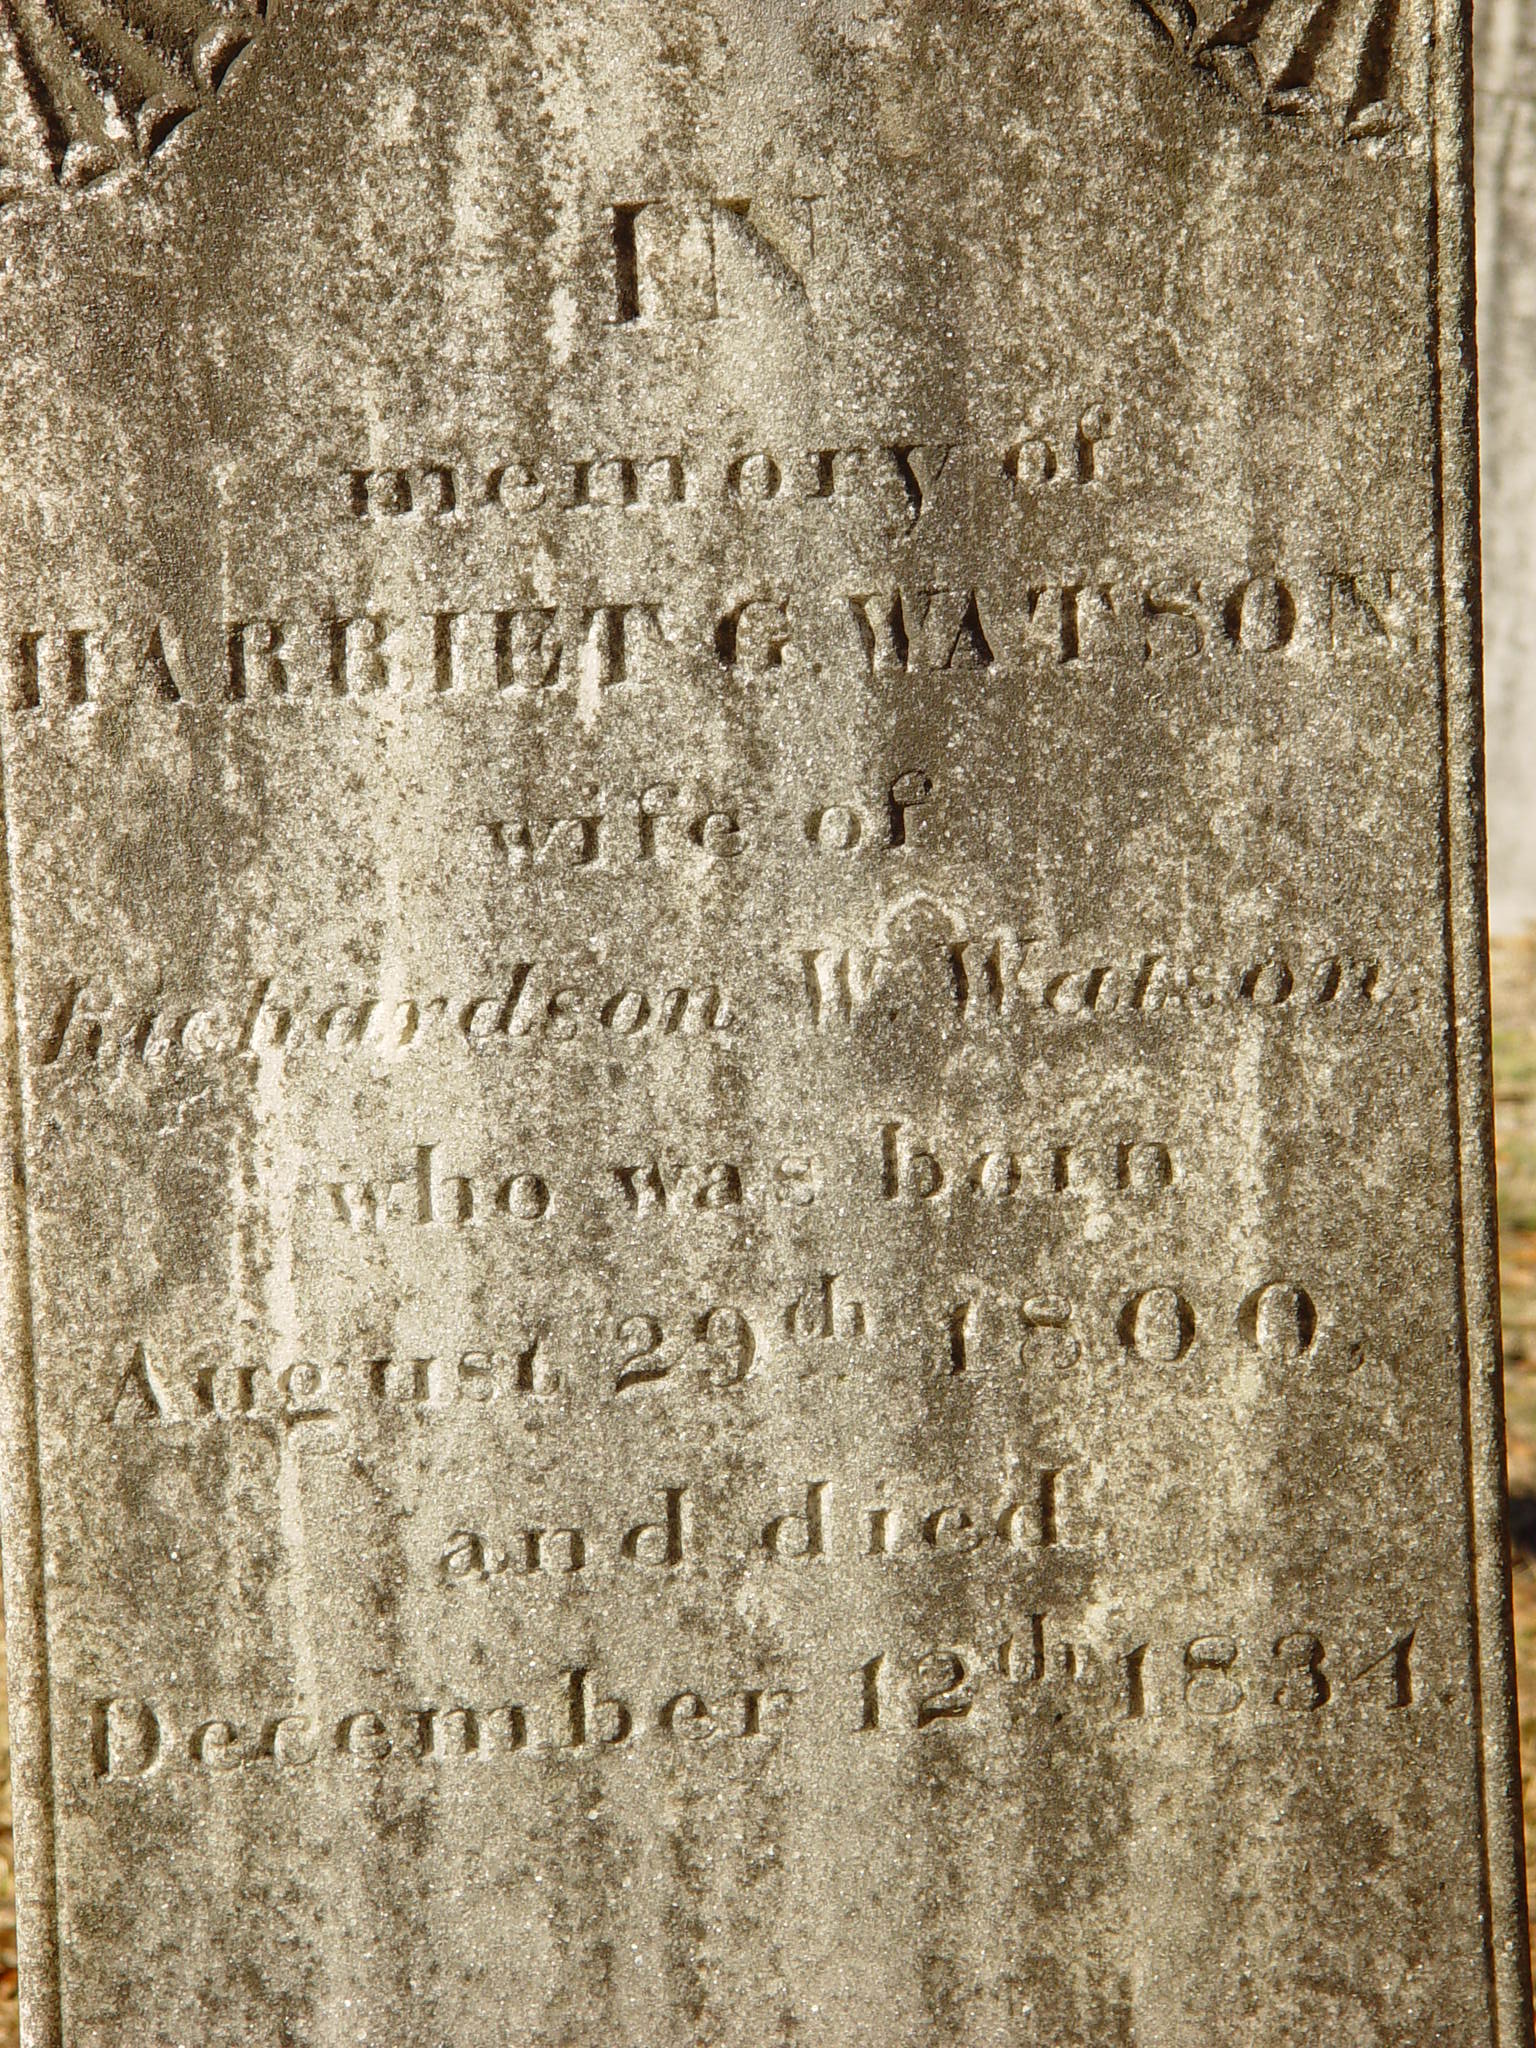 IN
memory of
HARRIET G. WATSON
wife of
Richardson W. Watson,
who was born
August 29th 1800,
and died
December 12th 1834